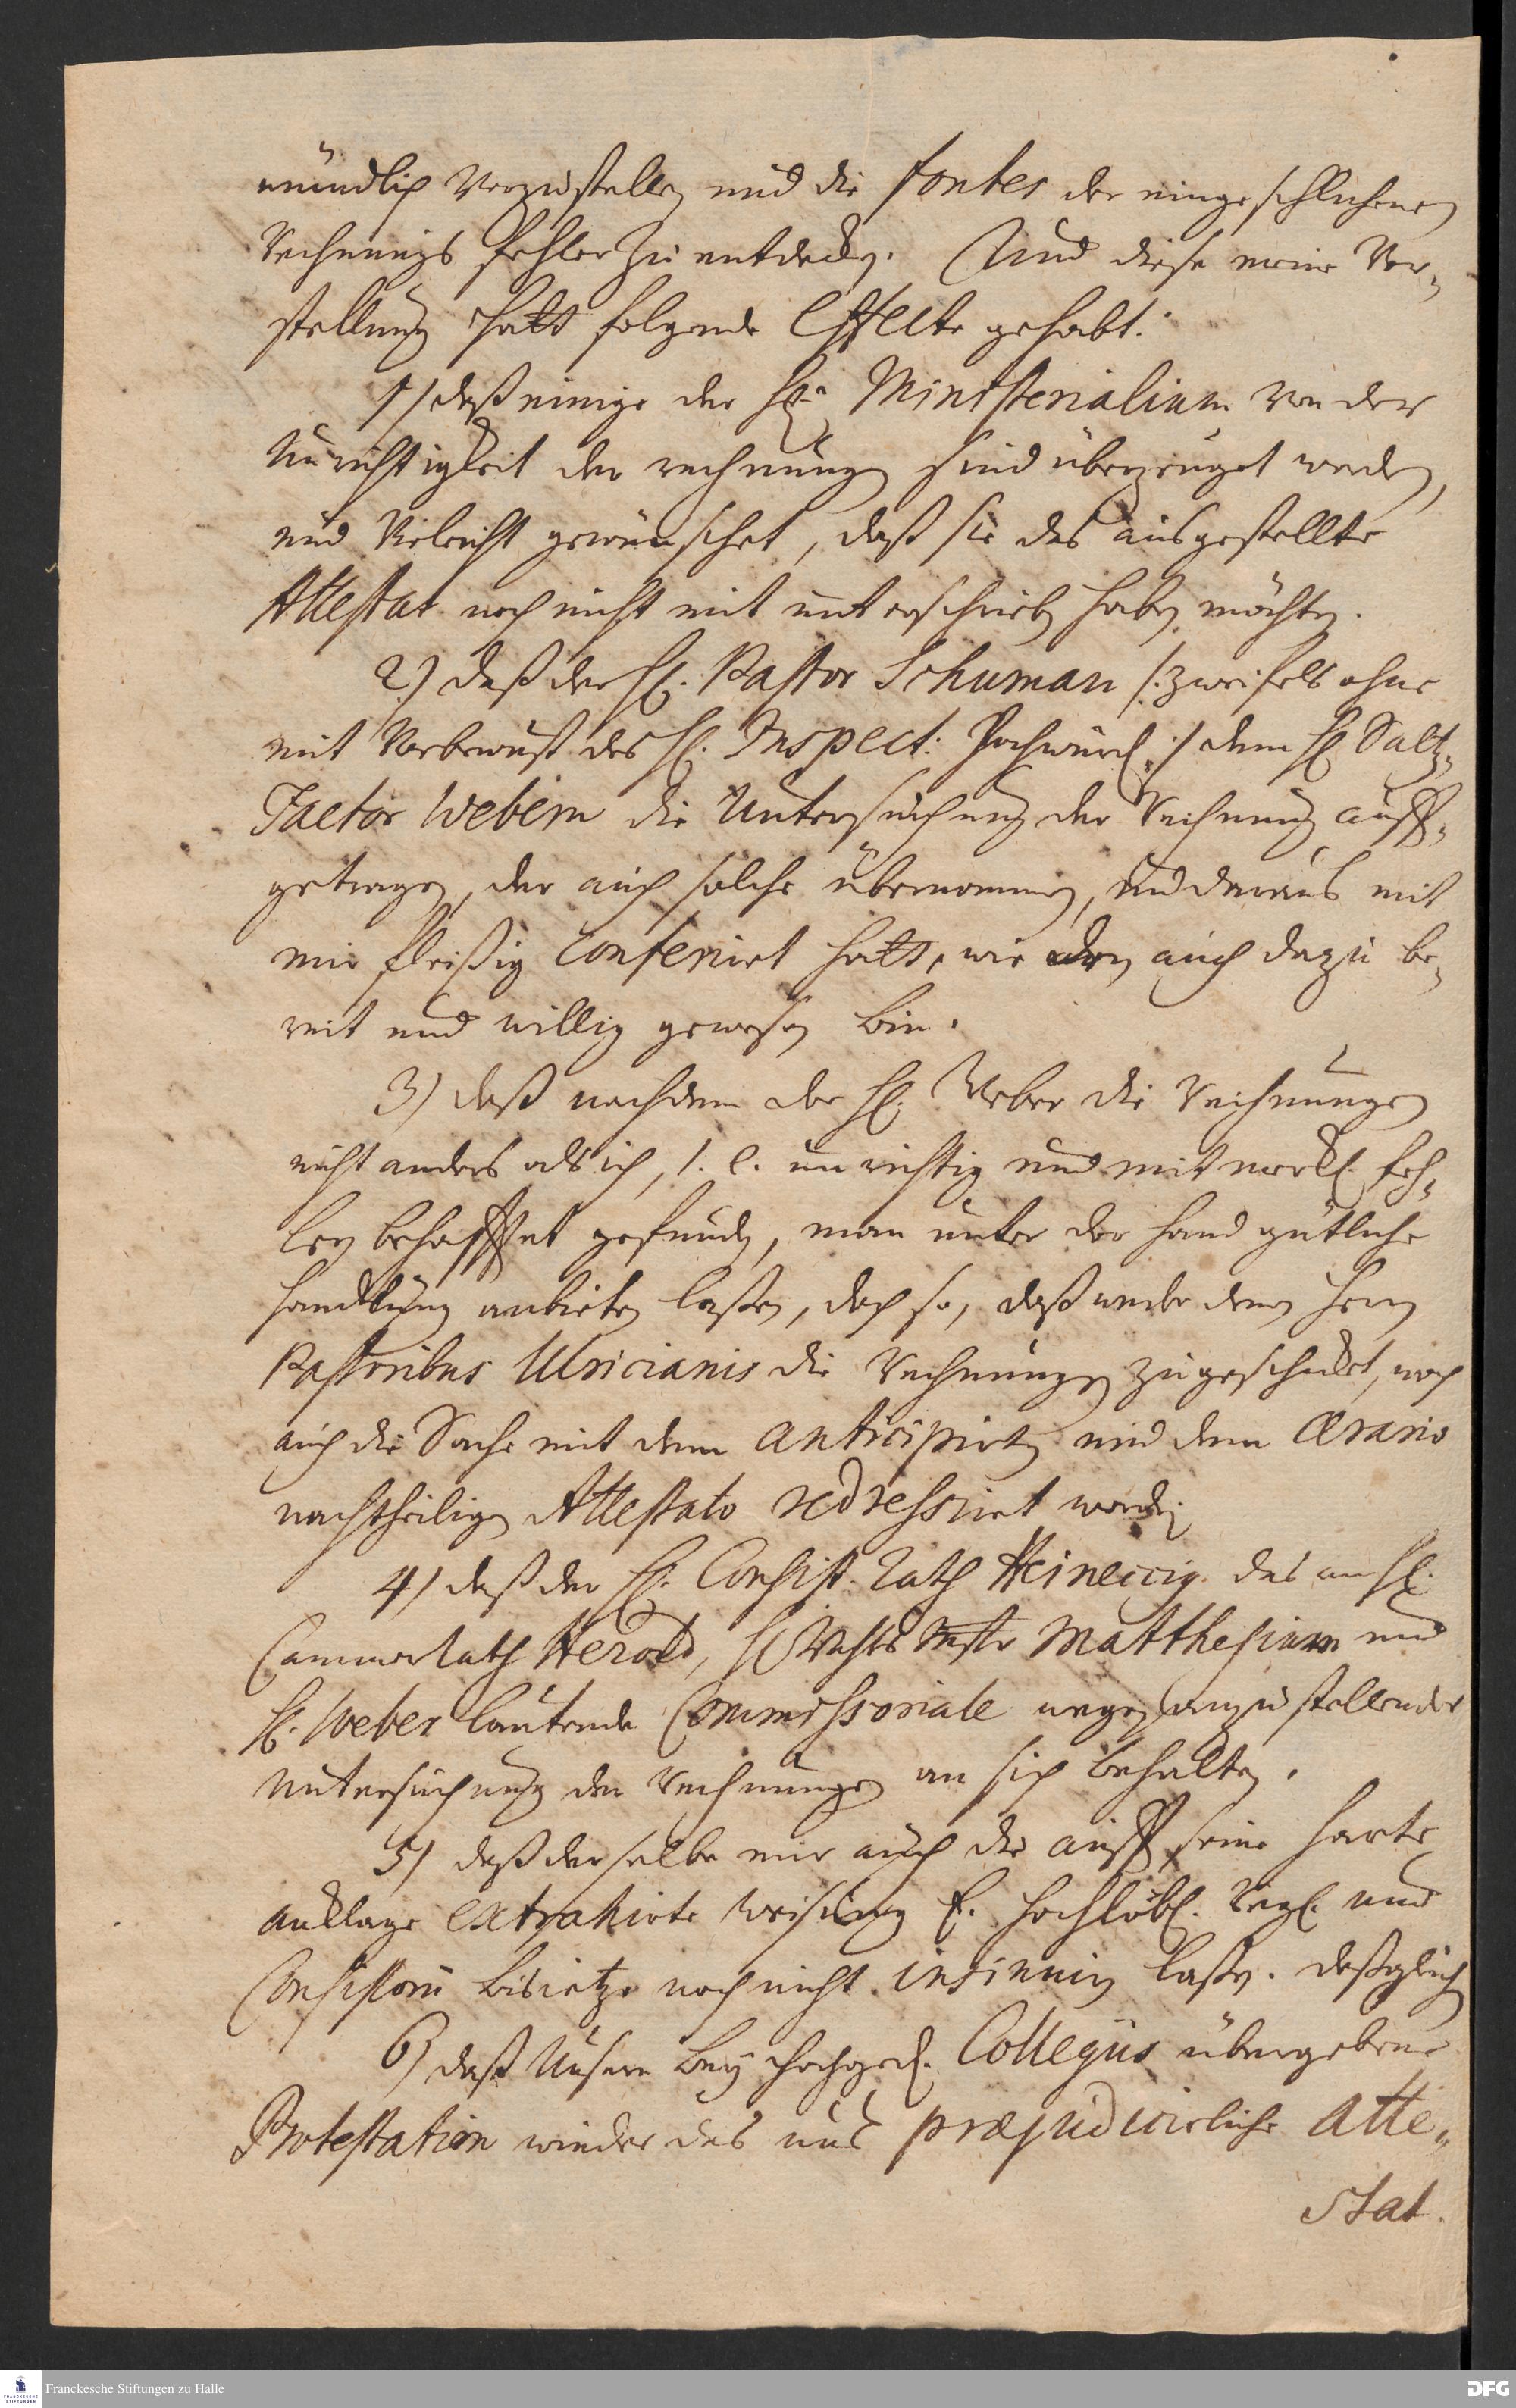 mündlich Vorzustellen und die fontes der eingeschlichenen
Rechnungs fehler zu entdecken. Und diese meine Vor-
stellung hatt folgende Effecte gehabt:
1) daß einige der Hn. Ministerialium von der
Unrichtigkeit der rechnungen sind überzeuget worden,
und Vieleicht gewünschet, daß sie das ausgestellte
Attestat noch nicht mit unterschrieben haben möchten.
2.) daß der H. Pastor Schuman /: zweifels ohne
mit Vorbewust des H. Inspect: Hochwürd. :/ dem H. Saltz-
Factor Webern die Untersuchung der Rechnung auff-
getragen, der auch solche übernommen, und daraus mit
mir fleißig conferiret hatt, wie den auch dazu be-
reit und willig gewesen bin.
3) daß nachdem der H. Weber die Rechnungen
nicht anders als ich, i. e. unrichtig und mit merkl. feh-
lern behafftet gefunden, man unter der Hand gütliche
handlung anbieten laßen, doch so, daß weder denen Herrn
Pastoribus Ulricianis die Rechnungen zugeschickt, noch
auch die Sache mit dem anticipirten und dem Ærario
nachtheiligen Attestato redressiret worden.
4) daß der H. Consist. Rath Heineccig das an H.
Cammer Rath Herold, H. Mattheſium und
H. Weber lautende Commissoriale wegen anzustellender
Untersuchung der Rechnungen an sich behalten.
5) daß derselbe mir auch die auff seine harte
anklage extrahirte Weisung E. Hochlöbl. Regl. und
Consistorii bis ietzo noch nicht insinuiren laßen. deßgleichen
6) daß Unsere bey hochged. Collegiis übergebene
Protestation wieder das uns præjudicirliche Atte-
stat.
Franckesche Stiftungen zu Halle
DFG